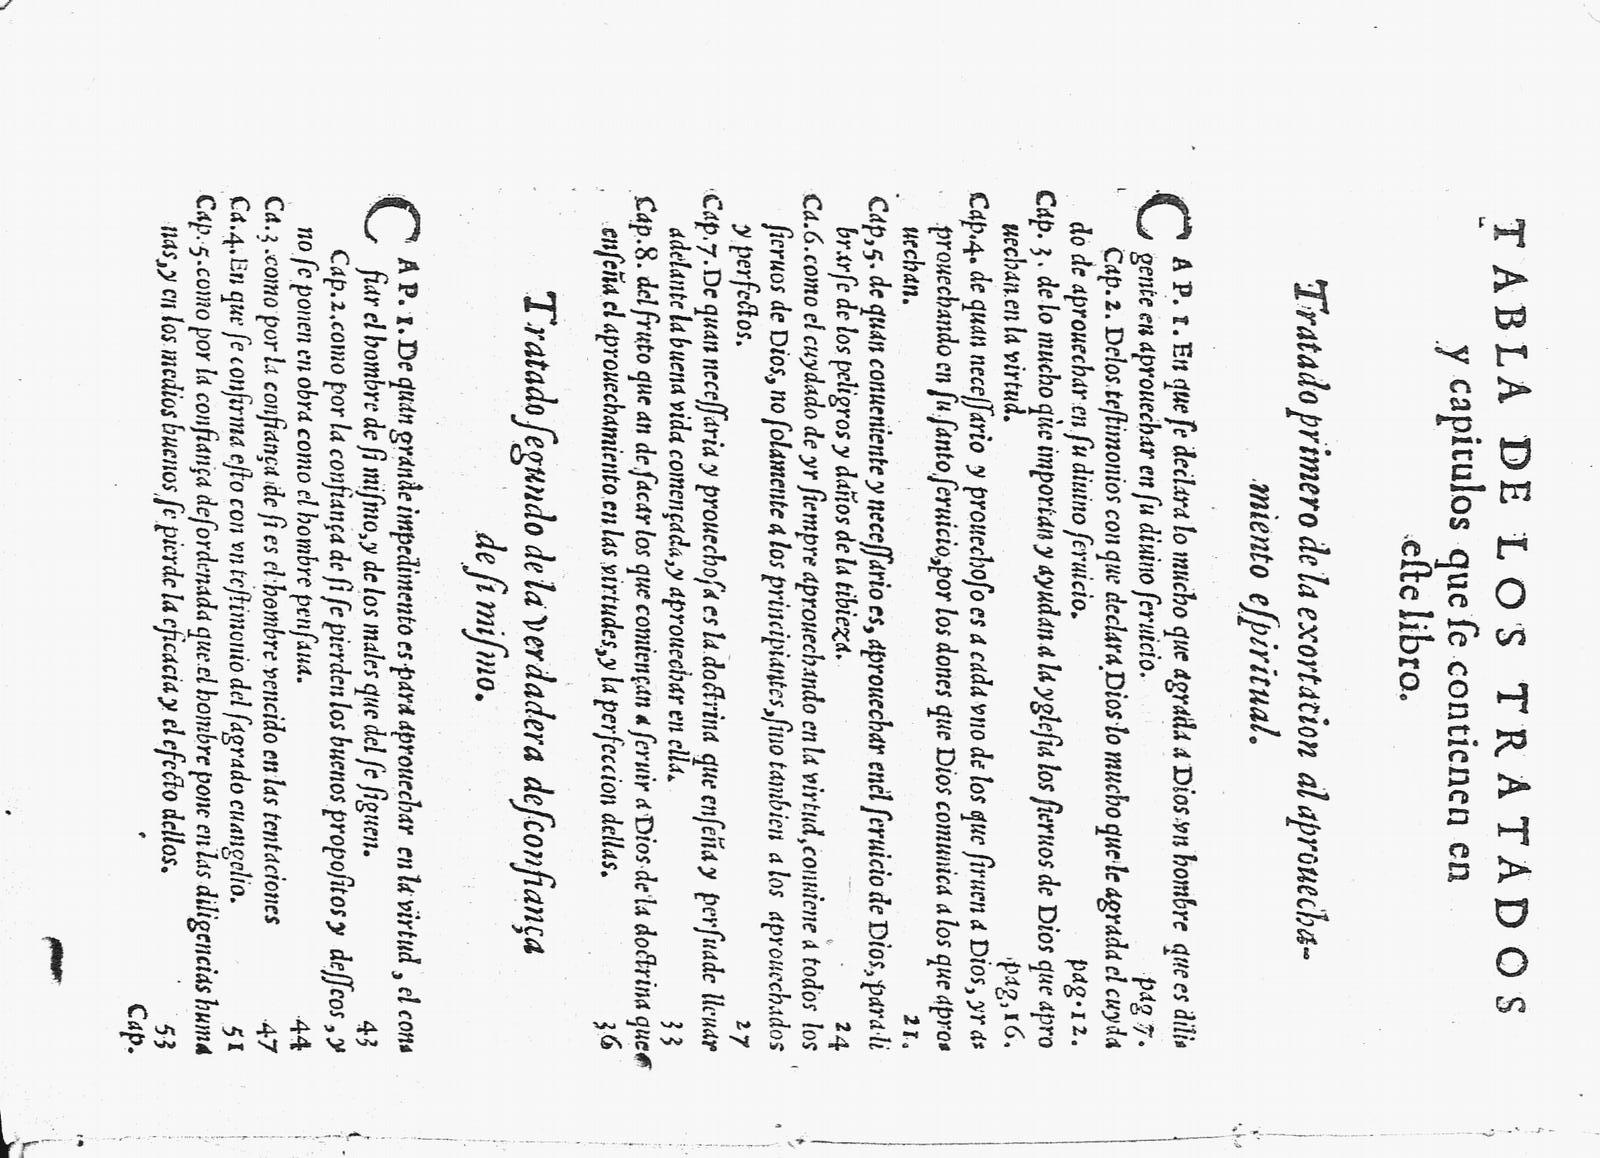 TABLA DE LOS TRATADOS
y capitulos que ſe contienen en
eſte libro.
Tratado primero de la exortacion al aprouecha-
miento eſpiritual.
CAP. 1. En que ſe declara lo mucho que agrada a Dios vn hombre que es dili-
gente en aprouechar en ſu diuino ſeruicio. pag 7.
Cap. 2. Delos teſtimonios con que declara Dios lo mucho que le agrada el cuyda
do de aprouechar en ſu diuino ſeruicio. pag. 12.
Cap. 3. de lo mucho que importan y ayudan a la ygleſia los ſieruos de Dios que apro
uechan en la virtud. pag, 16.
Cap. 4. de quan neceſſario y prouechoſo es a cada vno de los que ſiruen a Dios, yr a-
prouechando en ſu ſanto ſeruicio, por los dones que Dios comunica a los que apro-
uechan. 21.
Cap, 5. de quan conueniente y neceſſario es, aprouechar enel ſeruicio de Dios, para li
brarſe de los peligros y daños de la tibieza. 24
Ca. 6. como el cuydado de yr ſiempre aprouechando en la virtud, conuiene a todos los
ſieruos de Dios, no ſolamente a los principiantes, ſino tambien a los aprouechados
y perfectos. 27
Cap. 7. De quan neceſſaria y prouechoſa es la doctrina que enſeña y perſuade lleuar
adelante la buena vida començada, y aprouechar en ella. 33
Cap. 8. del fruto que an de ſacar los que comiençan a ſeruir a Dios de la doctrina que
enſeña el aprouechamiento en las virtudes, y la perfeccion dellas. 36
Tratado ſegundo de la verdadera deſconfiança
de ſi miſmo.
CAP. 1. De quan grande impedimento es para aprouechar en la virtud, el con-
fiar el hombre de ſi miſmo, y de los males que del ſe ſiguen. 43
Cap. 2. como por la confiança de ſi ſe pierden los buenos propoſitos y deſſeos, y
no ſe ponen en obra como el hombre penſaua. 44
Ca. 3. como por la confiança de ſi es el hombre vencido en las tentaciones 47
Ca. 4. En que ſe confirma eſto con vn teſtimonio del ſagrado euangelio. 51
Cap. 5. como por la confiança deſordenada que el hombre pone en las diligencias huma
nas, y en los medios buenos ſe pierde la eficacia y el efecto dellos. 53
Cap.